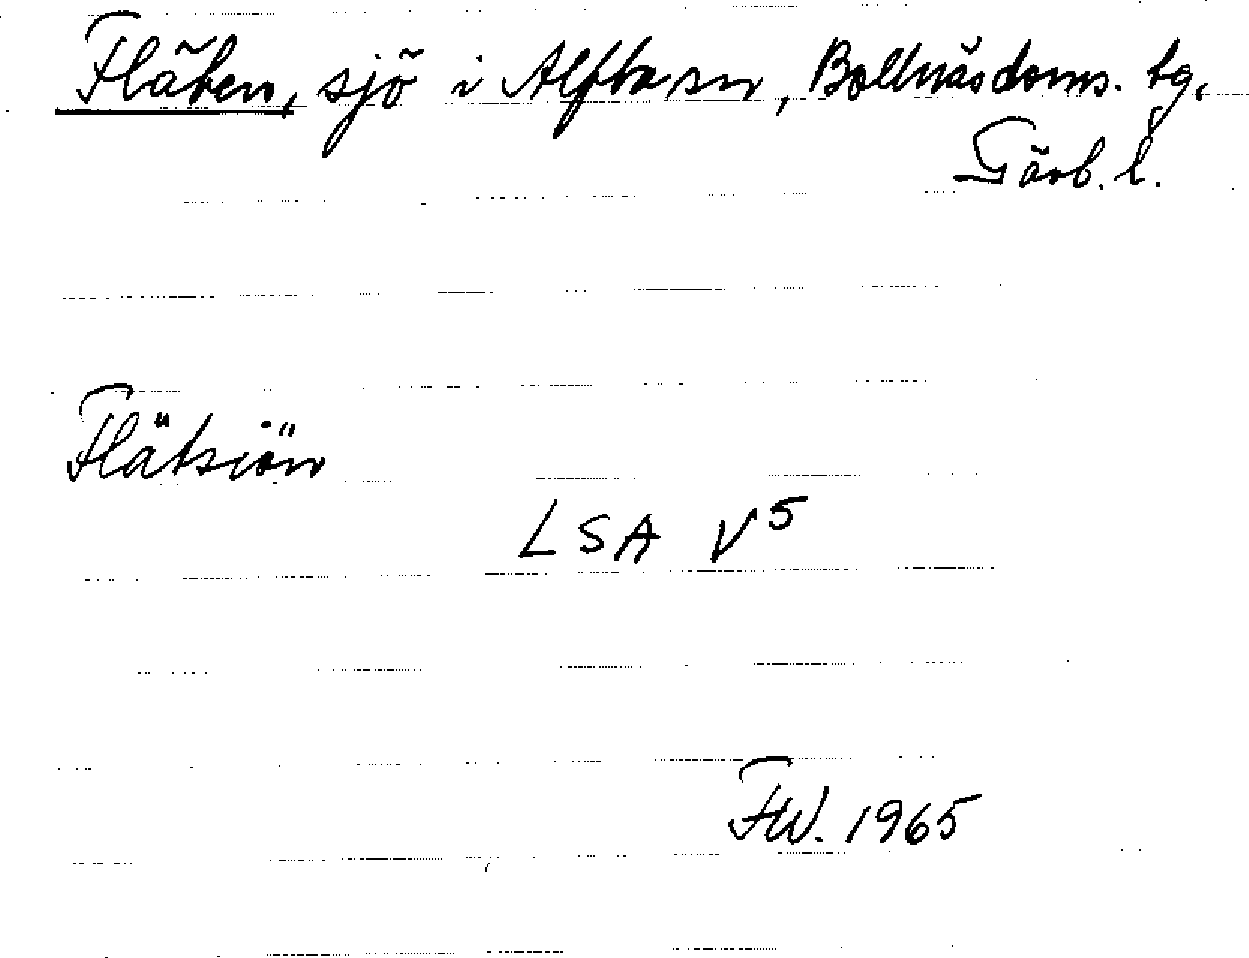 Fläten, sjö i Alfta sn, Bollnäs doms. tg,
Gävb. l.
Flätsiön
LSA V5
FW. 1965